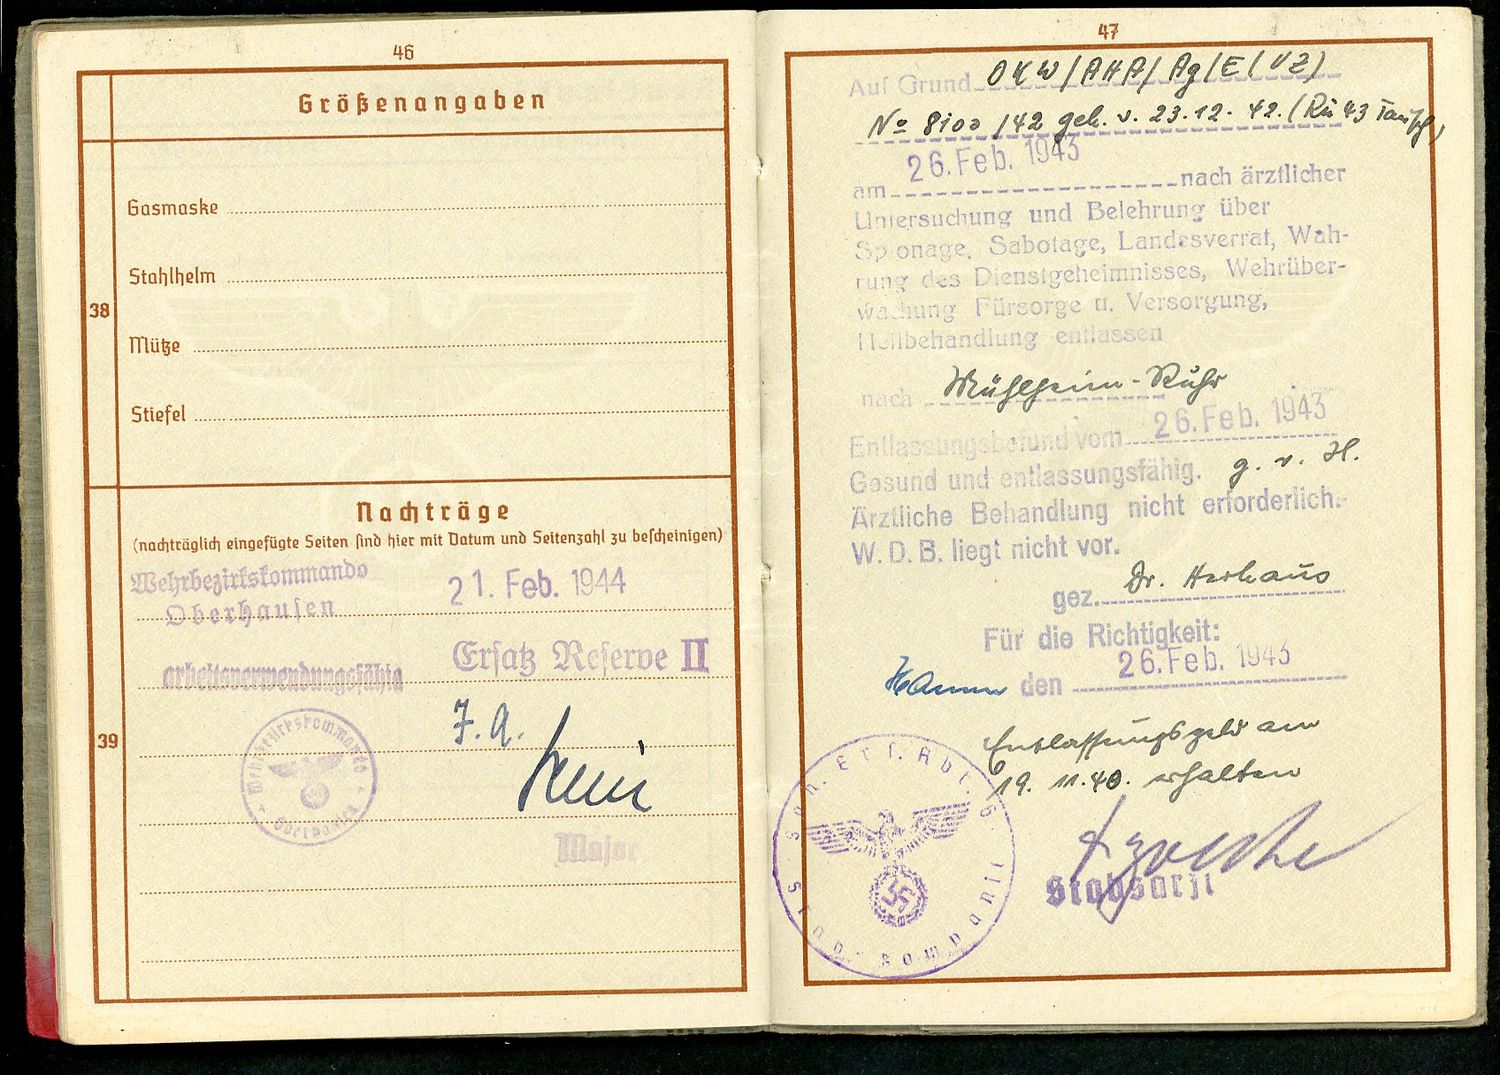 46
Größenangaben
38
Gasmaske
Stahlhelm
Mütze
Stiefel
Nachträge
(nachträglich eingefügte Seiten sind hier mit Datum und Seitenzahl zu bescheinigen)
39
Wehrbezirkskommando
Oberhausen
21. Feb. 1944
arbeitsverwendungsfähig
Ersatz Reserve II
J. A.
Wehrbezirkskommando
Oberhausen
Major
47
Auf Grund OKW/AHA/Ag/E(VZ)
No 8100/42 geh. v. 23.12.42. (Rü 43 Tausch)
am 26. Feb. 1943 nach ärztlicher
Untersuchung und Belehrung über
Spionage, Sabotage, Landesverrat, Wah-
rung des Dienstgeheimnisses, Wehrüber-
wachung Fürsorge u. Versorgung,
Heilbehandlung entlassen
nach Mühlheim-Ruhr
Entlassungsbefund vom 26. Feb. 1943
Gesund und entlassungsfähig. g. v. H.
Ärztliche Behandlung nicht erforderlich.
W. D. B. liegt nicht vor.
gez. Dr.
Für die Richtigkeit:
Hamm den 26. Feb. 1943
Entlassungsgeld am
19. 11. 40. erhalten
Stabsarzt